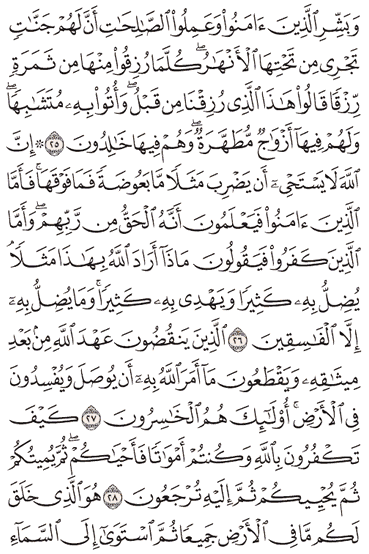 وَبَشِّرِ ٱلَّذِينَ ءَامَنُوا۟ وَعَمِلُوا۟ ٱلصَّٰلِحَٰتِ أَنَّ لَهُمْ جَنَّٰتٍ
تَجْرِى مِن تَحْتِهَا ٱلْأَنْهَٰرُ ۖ كُلَّمَا رُزِقُوا۟ مِنْهَا مِن ثَمَرَةٍ
رِّزْقًا قَالُوا۟ هَٰذَا ٱلَّذِى رُزِقْنَا مِن قَبْلُ ۖ وَأُتُوا۟ بِهِۦ مُتَشَٰبِهًا ۖ
وَلَهُمْ فِيهَآ أَزْوَٰجٌ مُّطَهَّرَةٌ ۖ وَهُمْ فِيهَا خَٰلِدُونَ ٢٥ ۞ إِنَّ
ٱللَّهَ لَا يَسْتَحْىِۦٓ أَن يَضْرِبَ مَثَلًا مَّا بَعُوضَةً فَمَا فَوْقَهَا ۚ فَأَمَّا
ٱلَّذِينَ ءَامَنُوا۟ فَيَعْلَمُونَ أَنَّهُ ٱلْحَقُّ مِن رَّبِّهِمْ ۖ وَأَمَّا
ٱلَّذِينَ كَفَرُوا۟ فَيَقُولُونَ مَاذَآ أَرَادَ ٱللَّهُ بِهَٰذَا مَثَلًا ۘ
يُضِلُّ بِهِۦ كَثِيرًا وَيَهْدِى بِهِۦ كَثِيرًا ۚ وَمَا يُضِلُّ بِهِۦٓ
إِلَّا ٱلْفَٰسِقِينَ ٢٦ ٱلَّذِينَ يَنقُضُونَ عَهْدَ ٱللَّهِ مِنۢ بَعْدِ
مِيثَٰقِهِۦ وَيَقْطَعُونَ مَآ أَمَرَ ٱللَّهُ بِهِۦٓ أَن يُوصَلَ وَيُفْسِدُونَ
فِى ٱلْأَرْضِ ۚ أُو۟لَٰٓئِكَ هُمُ ٱلْخَٰسِرُونَ ٢٧ كَيْفَ
تَكْفُرُونَ بِٱللَّهِ وَكُنتُمْ أَمْوَٰتًا فَأَحْيَٰكُمْ ۖ ثُمَّ يُمِيتُكُمْ
ثُمَّ يُحْيِيكُمْ ثُمَّ إِلَيْهِ تُرْجَعُونَ ٢٨ هُوَ ٱلَّذِى خَلَقَ
لَكُم مَّا فِى ٱلْأَرْضِ جَمِيعًا ثُمَّ ٱسْتَوَىٰٓ إِلَى ٱلسَّمَآءِ